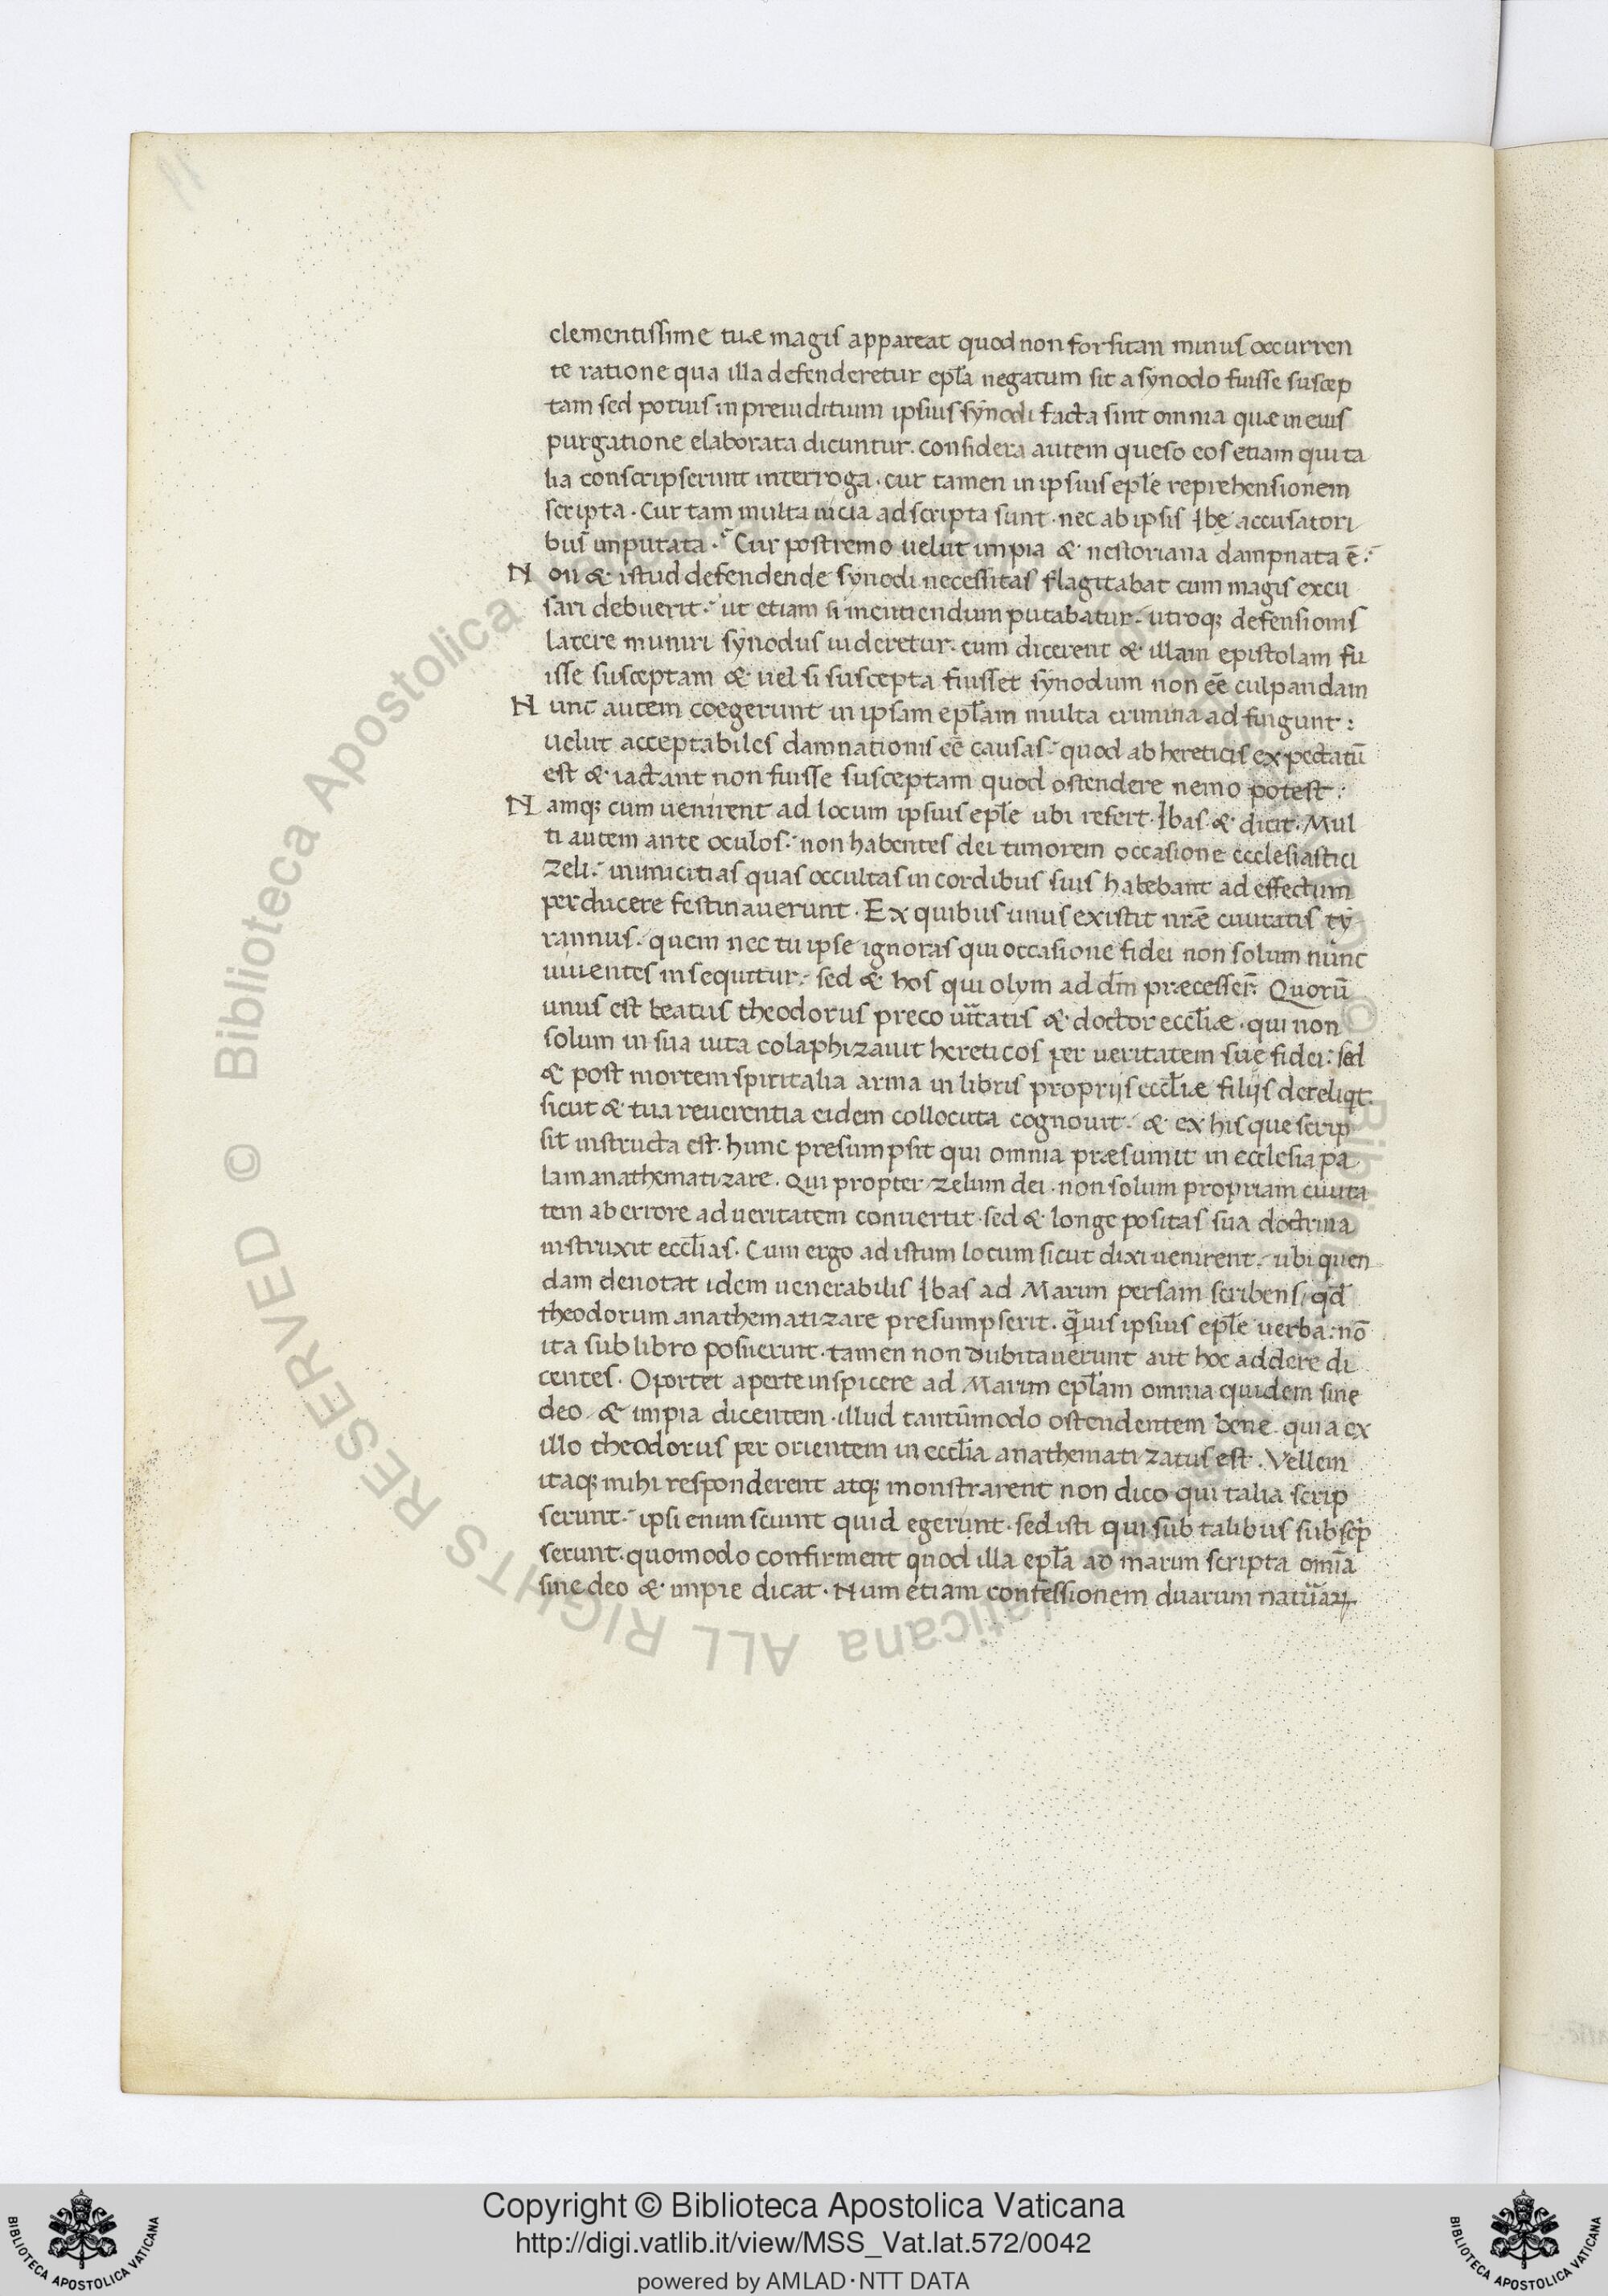 clementissime tuae magis appareat quod non forsitan minus occurren
te ratione qua illa defenderetur epl̄a negatum sit a synodo fuisse suscep
tam sed potius in preiuditium ipsius synodi facta sint omnia quae in eius
purgatione elaborata dicuntur. considera autem queso eos etiam qui ta
lia conscripserunt interroga. cur tamen in ipsius epl̄e reprehensionem
scripta. Cur tam multa uicia adscripta sunt. nec ab ipsis Ibę accusatori
bus imputata. Cur postremo uelut impia & nestoriana dampnata ē.
Non & istud defendende synodi necessitas flagitabat cum magis excu
sari debuerit. ut etiam si incutiendum putabatur. utroq; defensionis
latere muniri synodus uideretur. cum dicerent & illam epistolam fu
isse susceptam & uel si suscepta fuisset synodum non eē culpandam
Nunc autem coegerunt in ipsam epl̄am multa crimina ad fingunt:
uelut acceptabiles damnationis eē causas. quod ab hereticis expectatū
est & iactant non fuisse susceptam quod ostendere nemo potest:
Namq; cum uenirent ad locum ipsius epl̄e ubi refert. Ibas & dicit. Mul
ti autem ante oculos. non habentes dei timorem occasione ecclesiastici
zeli. inimicitias quas occultas in cordibus suis habebant ad effectum
perducere festinauerunt. Ex quibus unus existit nrē ciuitatis ty
rannus. quem nec tu ipse ignoras qui occasione fidei non solum nunc
uiuentes insequitur. sed & hos qui olym ad dm̄ præcesser̄. Quorū
unus est beatus theodorus preco uītatis & doctor eccl̄iæ. qui non
solum in sua uita colaphizauit hereticos per ueritatem suę fidei: sed
& post mortem spiritalia arma in libris proprijs eccl̄iæ filijs dereliqt.
sicut & tua reuerentia eidem collocuta cognouit. & ex his que scrip
sit instructa est. hunc presumpsit qui omnia præsumit in ecclesia pa
lam anathematizare. Qui propter zelum dei. non solum propriam ciuita
tem ab errore ad ueritatem conuertit. sed & longe positas sua doctrina
instruxit eccl̄ias. Cum ergo ad istum locum sicut dixi uenirent. ubi quen
dam denotat idem uenerabilis Ibas ad Marim persam scribens, qd̄
theodorum anathematizare presumpserit. q̄uis ipsius epl̄e uerba. nō
ita sub libro posuerunt. tamen non dubitauerunt aut hoc addere di
centes. Oportet aperte inspicere ad Marim epl̄am omnia quidem sine
deo & impia dicentem. illud tantūmodo ostendentem bene. quia ex
illo theodorus per orientem in eccl̄ia anathematizatus est. Vellem
itaq; mihi responderent atq; monstrarent non dico qui talia scrip
serunt. ipsi enim sciunt quid egerunt. sed isti qui sub talibus subscp̄
serunt. quomodo confirment quod illa epl̄a ad marim scripta omīa
sine deo & impie dicat. Num etiam confessionem duarum natūaꝝ
Copyright © Biblioteca Apostolica Vaticana
http://digi.vatlib.it/view/MSS_Vat.lat.572/0042
powered by AMLAD·NTT DATA